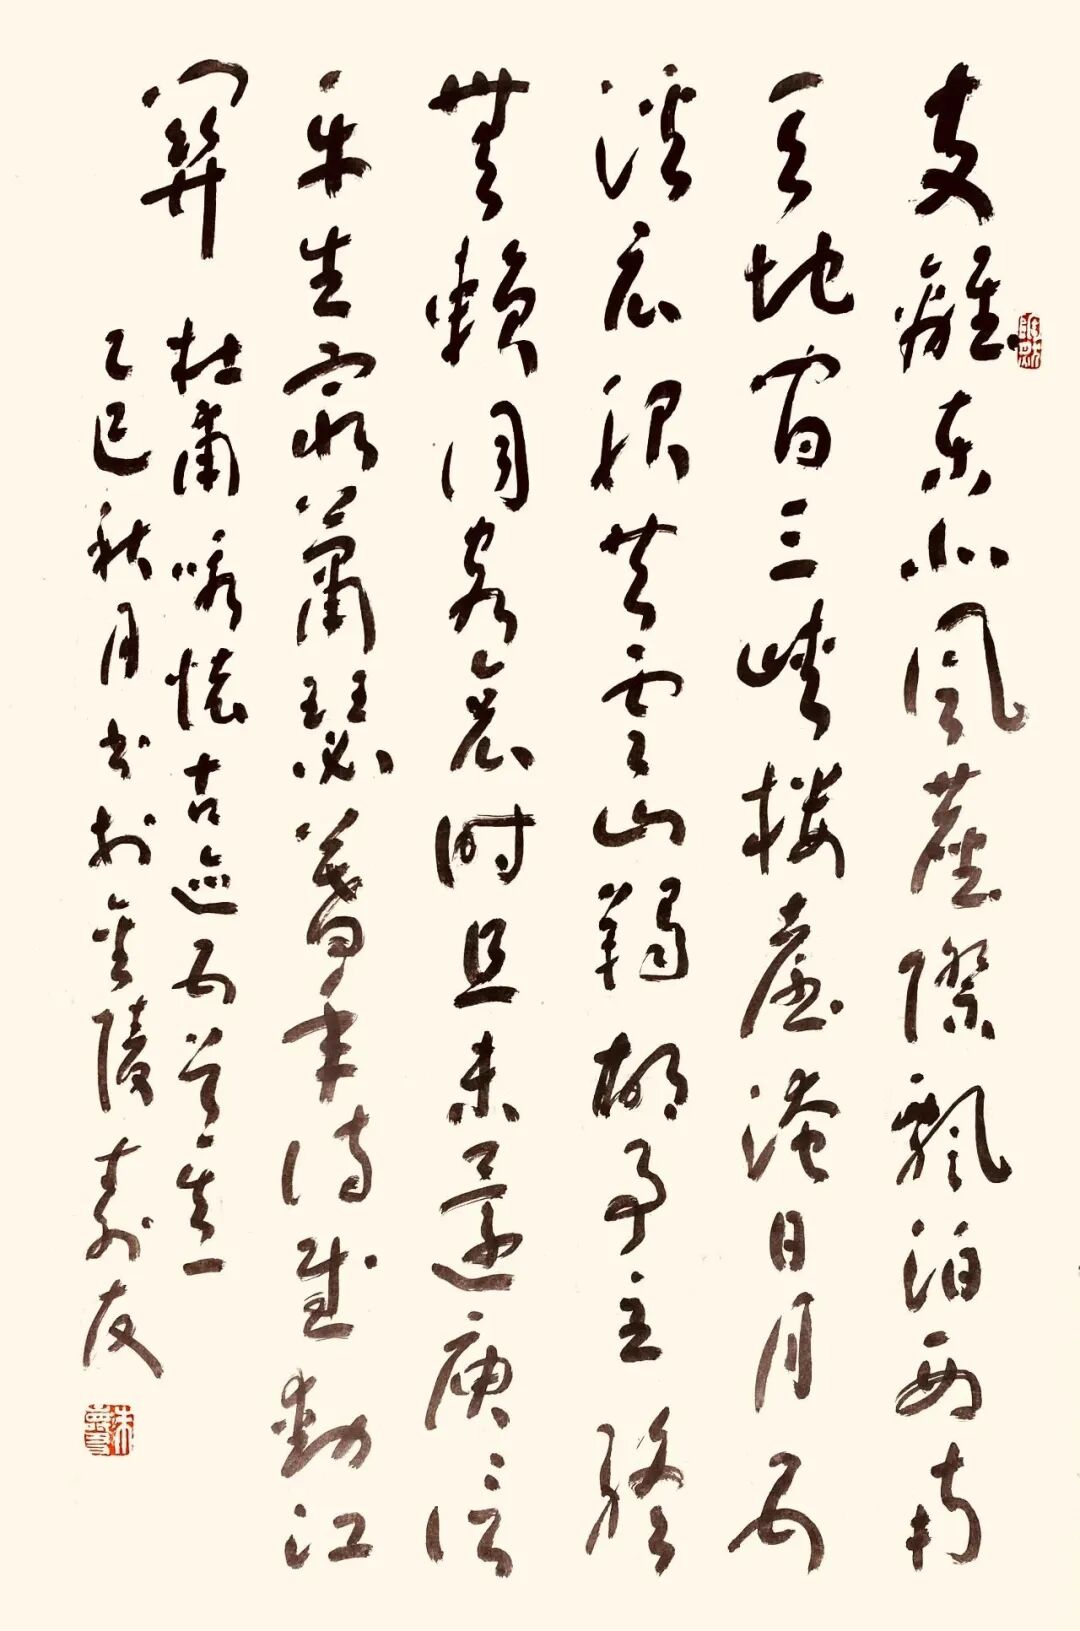 支離東北風塵際飄泊西南
天地間三峽樓臺淹日月五
溪衣服共雲山羯胡事主終
無賴詞客哀時且未還庾信
平生最蕭瑟暮年詩賦動江
關 杜甫咏懷古迹五首其一
乙巳秋月書於金陵壽友
朱壽友